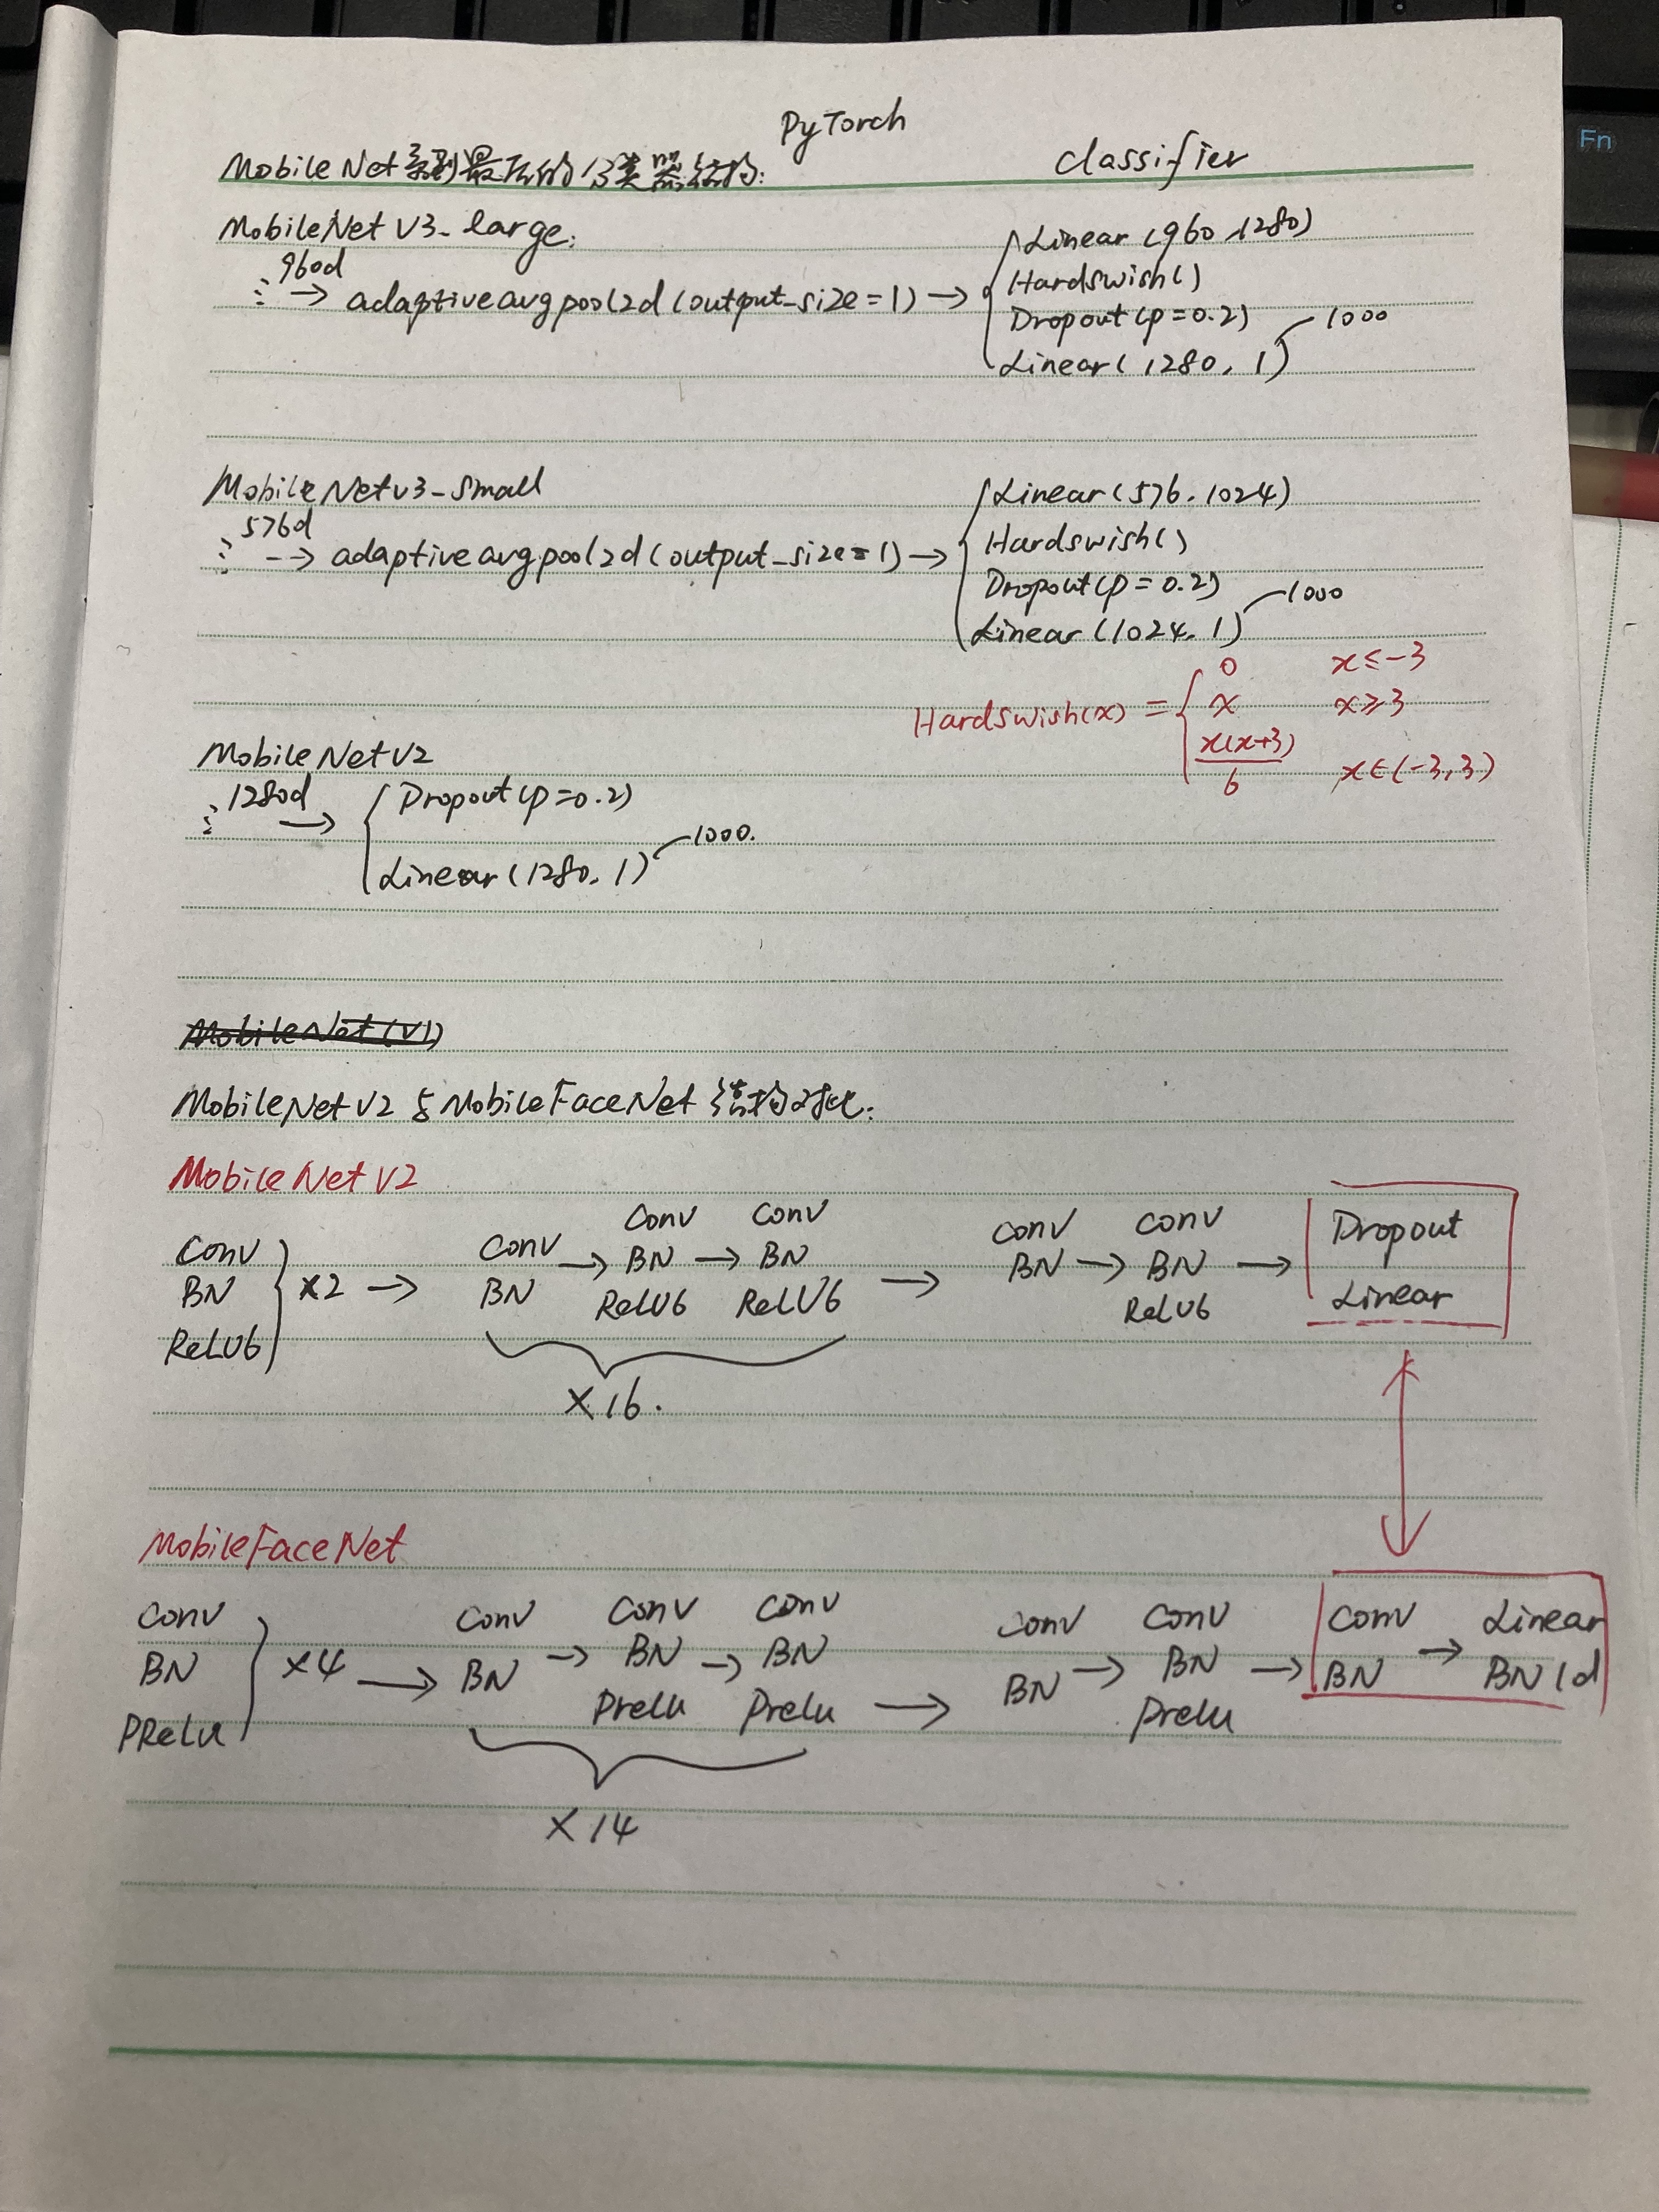 Fn
PyTorch
MobileNet系列最后的分类器结构: classifier
MobileNet V3-large:
960d
→ adaptiveavgpool2d(output_size=1) →
Linear(960,1280)
Hardswish()
Dropout(p=0.2)
Linear(1280,1) 1000
MobileNetv3-small
576d
→ adaptiveavgpool2d(output_size=1) →
Linear(576,1024)
Hardswish()
Dropout(p=0.2)
Linear(1024,1) 1000
Hardswish(x) = { 0 x≤-3
x x≥3
x(x+3)/6 x∈(-3,3)
MobileNetV2
1280d →
Dropout(p=0.2)
Linear(1280,1) 1000.
MobileNet(V1)
MobileNetV2与MobileFaceNet结构对比:
MobileNetV2
Conv BN ReLU6 } ×2 →
Conv BN → Conv BN ReLU6 → Conv BN ReLU6
×16.
→ Conv BN → Conv BN ReLU6 → Dropout Linear
MobileFaceNet
Conv BN PRelu } ×4 →
Conv BN → Conv BN Prelu → Conv BN Prelu
×14
→ Conv BN → Conv BN Prelu → Conv BN → Linear BN1d